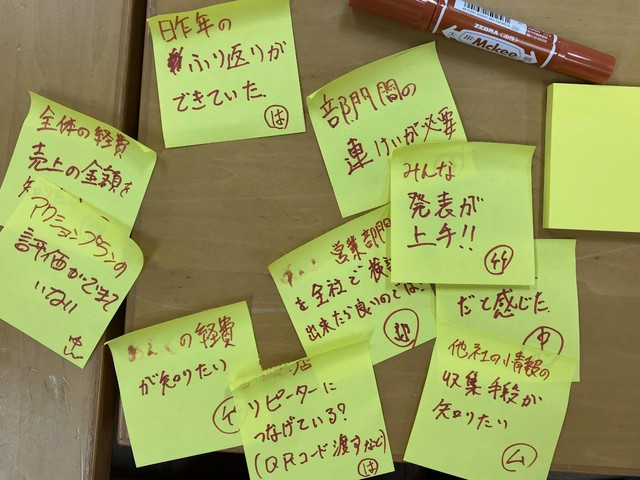 昨年の
ふり返りが
できていた.
は
ZEBRA
Mckee
部門間の
連けいが必要
みんな
発表が
上手!!
全体の経費
売上の金額を
アクションプランの
評価ができて
いない
営業部門
を全社で検討
出来たら良いのでは?
だと感じた.
中
の経費
が知りたい
リピーターに
つなげている?
(QRコード渡すなど)
は
他社の情報の
収集手段が
知りたい
ム